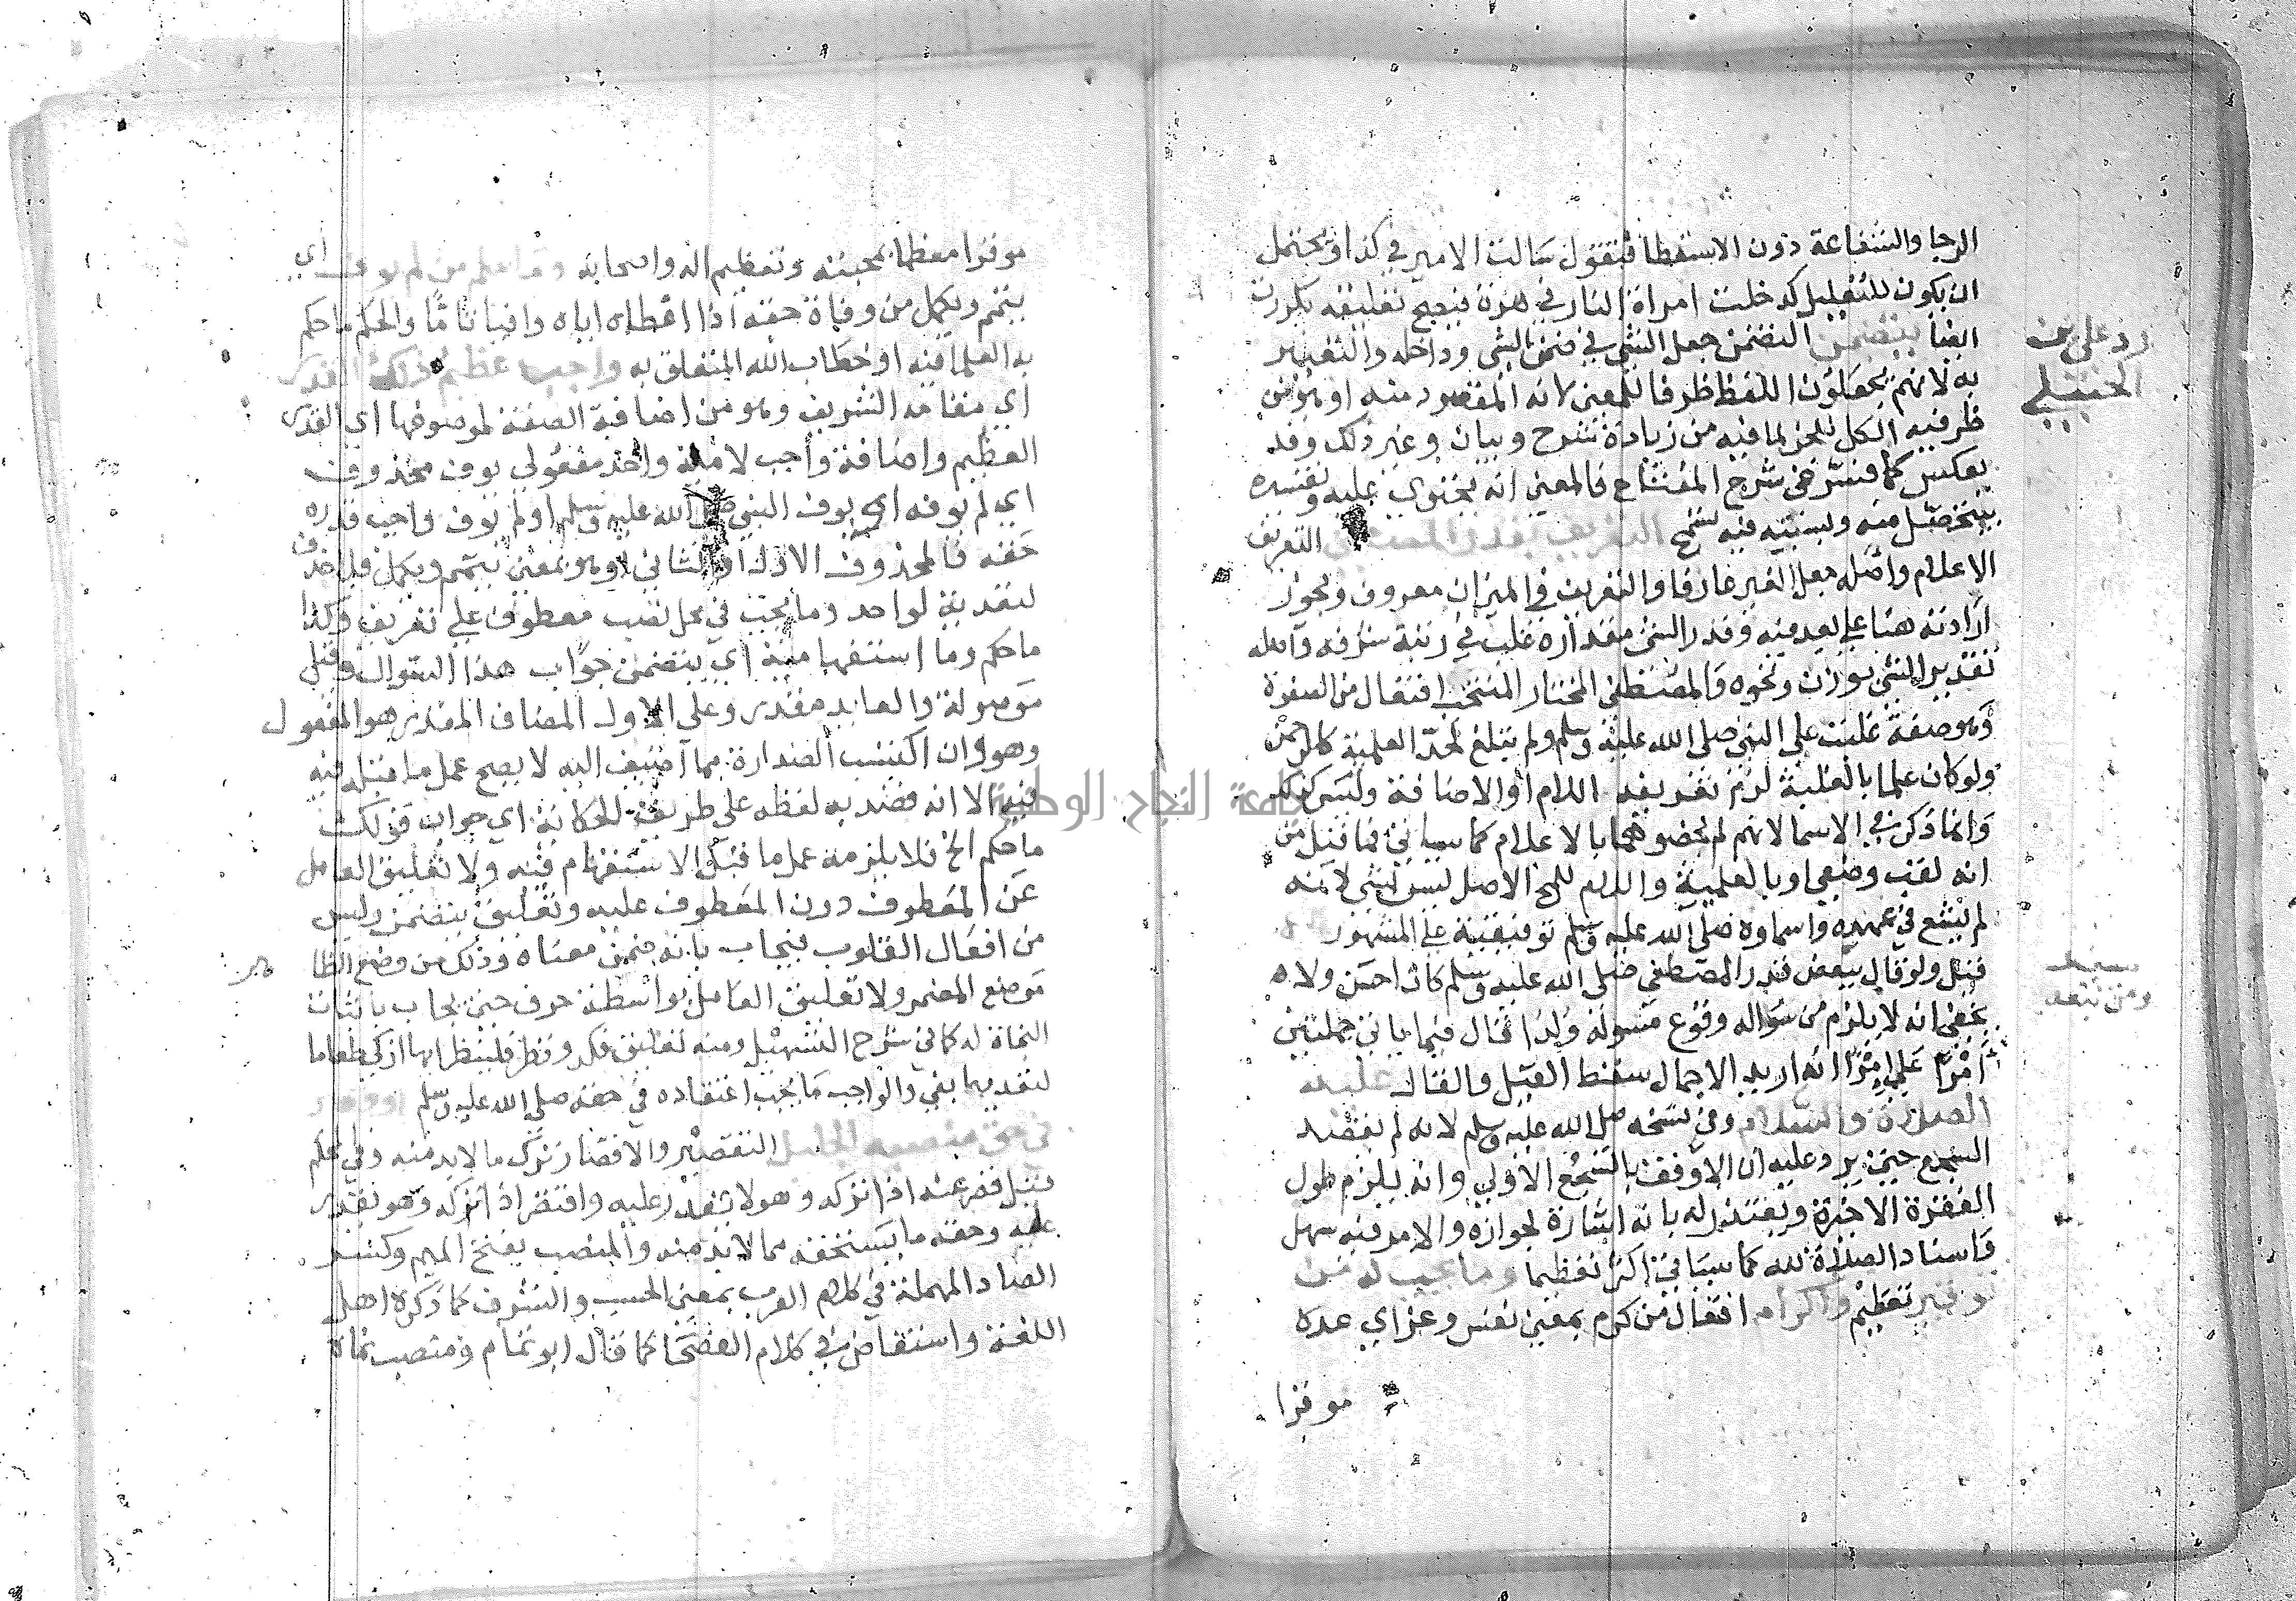 الرجا والشفاعة دون الاستعطا فتقول سالت الامير في كذا ويحتمل
ان يكون للتعليل كدخلت امراة النار في هرة فيصح تعليقه بكررت
ايضا يتضمن التضمن جعل الشي في ضمن الشي وداخله والتعبير
به لانهم يجعلون اللفظ ظرفا للمعنى لانه المقصود منه او هو من
ظرفيه الكل للجز لما فيه من زيادة شرح وبيان وغير ذلك وقد
يعكس كما فسر في شرح المفتاح فالمعنى انه يحتوي عليه وتفسيره
بيتحصل منه وبسببه فيه تسمح التعريف بقدر المصطفى التعريف
الاعلام واصله جعل الغير عارفا والتعريف في الميزان معروف ويجوز
ارادته هنا على بعد فيه وقدر الشي مقداره غلب في رتبة شرفه واصله
تقدير الشي بوزن ونحوه والمصطفى المختار المنتخب افتعال من الصفوة
وهو صفة غلبت على النبي صلى الله عليه وسلم ولم يبلغ لحد العلمية كالرحمن
ولو كان علما بالغلبة لزم تعريفه اللام او الاضافة وليس كذلك
وانما ذكر في الاسما لانهم لم يخصوها بالاعلام كما سياتي فما قيل من
انه لقب وضعي او بالعلمية واللام للمح الاصل ليس بشي لانه
لم يشع في عهده واسماوه صلى الله عليه وسلم توقيفية على المشهور
قيل ولو قال ببعض قدر المصطفى صلى الله عليه وسلم كان احسن ولا
يخفى انه لا يلزم من سواله وقوع مسوله ولذا قال فيما ياتي جملتين
امرا على امرا انه اريد الاجمال سقط القيل والقال عليه
الصلاة والسلام وفي نسخه صلى الله عليه وسلم لانه لم يقصد
السجع حتى يرد عليه ان الاوفق بالسجع الاولى وانه يلزم طول
الفقرة الاخيرة ويعتذر له بانه اشارة لجوازه والامر فيه سهل
واسناد الصلاة لله كما سياتي اكثر تعظيما وما يجب له من
توقير تعظيم واكرام افتعال من كرم بمعنى نفس وعز اي عده
موقرا
رد على بن
الحنبلي
موقرا معظما بمحبته وتعظيم اله واصحابه وما حكم من لم يوف اي
يتمم ويكمل من وفاة حقه اذا اعطاه اياه وافيا تاما والحكم ما حكم
به العلما فيه او خطاب الله المتعلق به واجب عظيم ذلك القدر
اي مقامه الشريف وهو من اضافة الصفة لموصوفها اي القدر
العظيم واضافة واجب لامية واحد مفعولي يوف محذوف
اي لم يوفه اي يوف النبي صلى الله عليه وسلم او لم يوف واجب قدره
حقه فالمحذوف الاول او الثاني او هو بمعنى يتمم ويكمل فلا حذف
لتعديه لواحد وما يجب في محل نصب معطوف على تعريف وكذا
ما حكم وما استفهامية اي يتضمن جواب هذا السوال وقيل
موصولة والعايد مقدر وعلى الاول المضاف المقدر هو المفعول
وهو وان اكتسب الصدارة مما اضيف اليه لا يصح عمل ما قبله فيه
فيه الا انه قصد به لفظه على طريقة الحكاية اي جواب قولك
ما حكم الخ فلا يلزمه عمل ما قبل الاستفهام فيه ولا تعليق العامل
عن المعطوف دون المعطوف عليه وتعليق يتضمن وليس
من افعال القلوب يجاب بانه ضمن معناه وذلك من وضع الظا
هر
موضع المضمر ولا تعليق العامل بواسطة حرف حتى يجاب باثبات
النحاة له كما في شرح التسهيل ومنه تعليق فكر ونظر فلينظر ايها ازكى طعاما
لتعديهما بفي والواجب ما يجب اعتقاده في حقه صلى الله عليه وسلم
في حق منصبه الجليل التقصير والاقتصار ترك ما لا بد منه وفي علم
يقبل قصر عنه اذا تركه وهو لا يقدر عليه واقتصر اذا تركه وهو يقدر
عليه وحقه ما يستحقه مما لا بد منه والمنصب بفتح الميم وكسر
الصاد المهملة في كلام العرب بمعنى الحسب والشرف كما ذكره اهل
اللغة واستفاض في كلام الفصحا كما قال ابو تمام ومنصب نماه
جامعة النجاح الوطنية